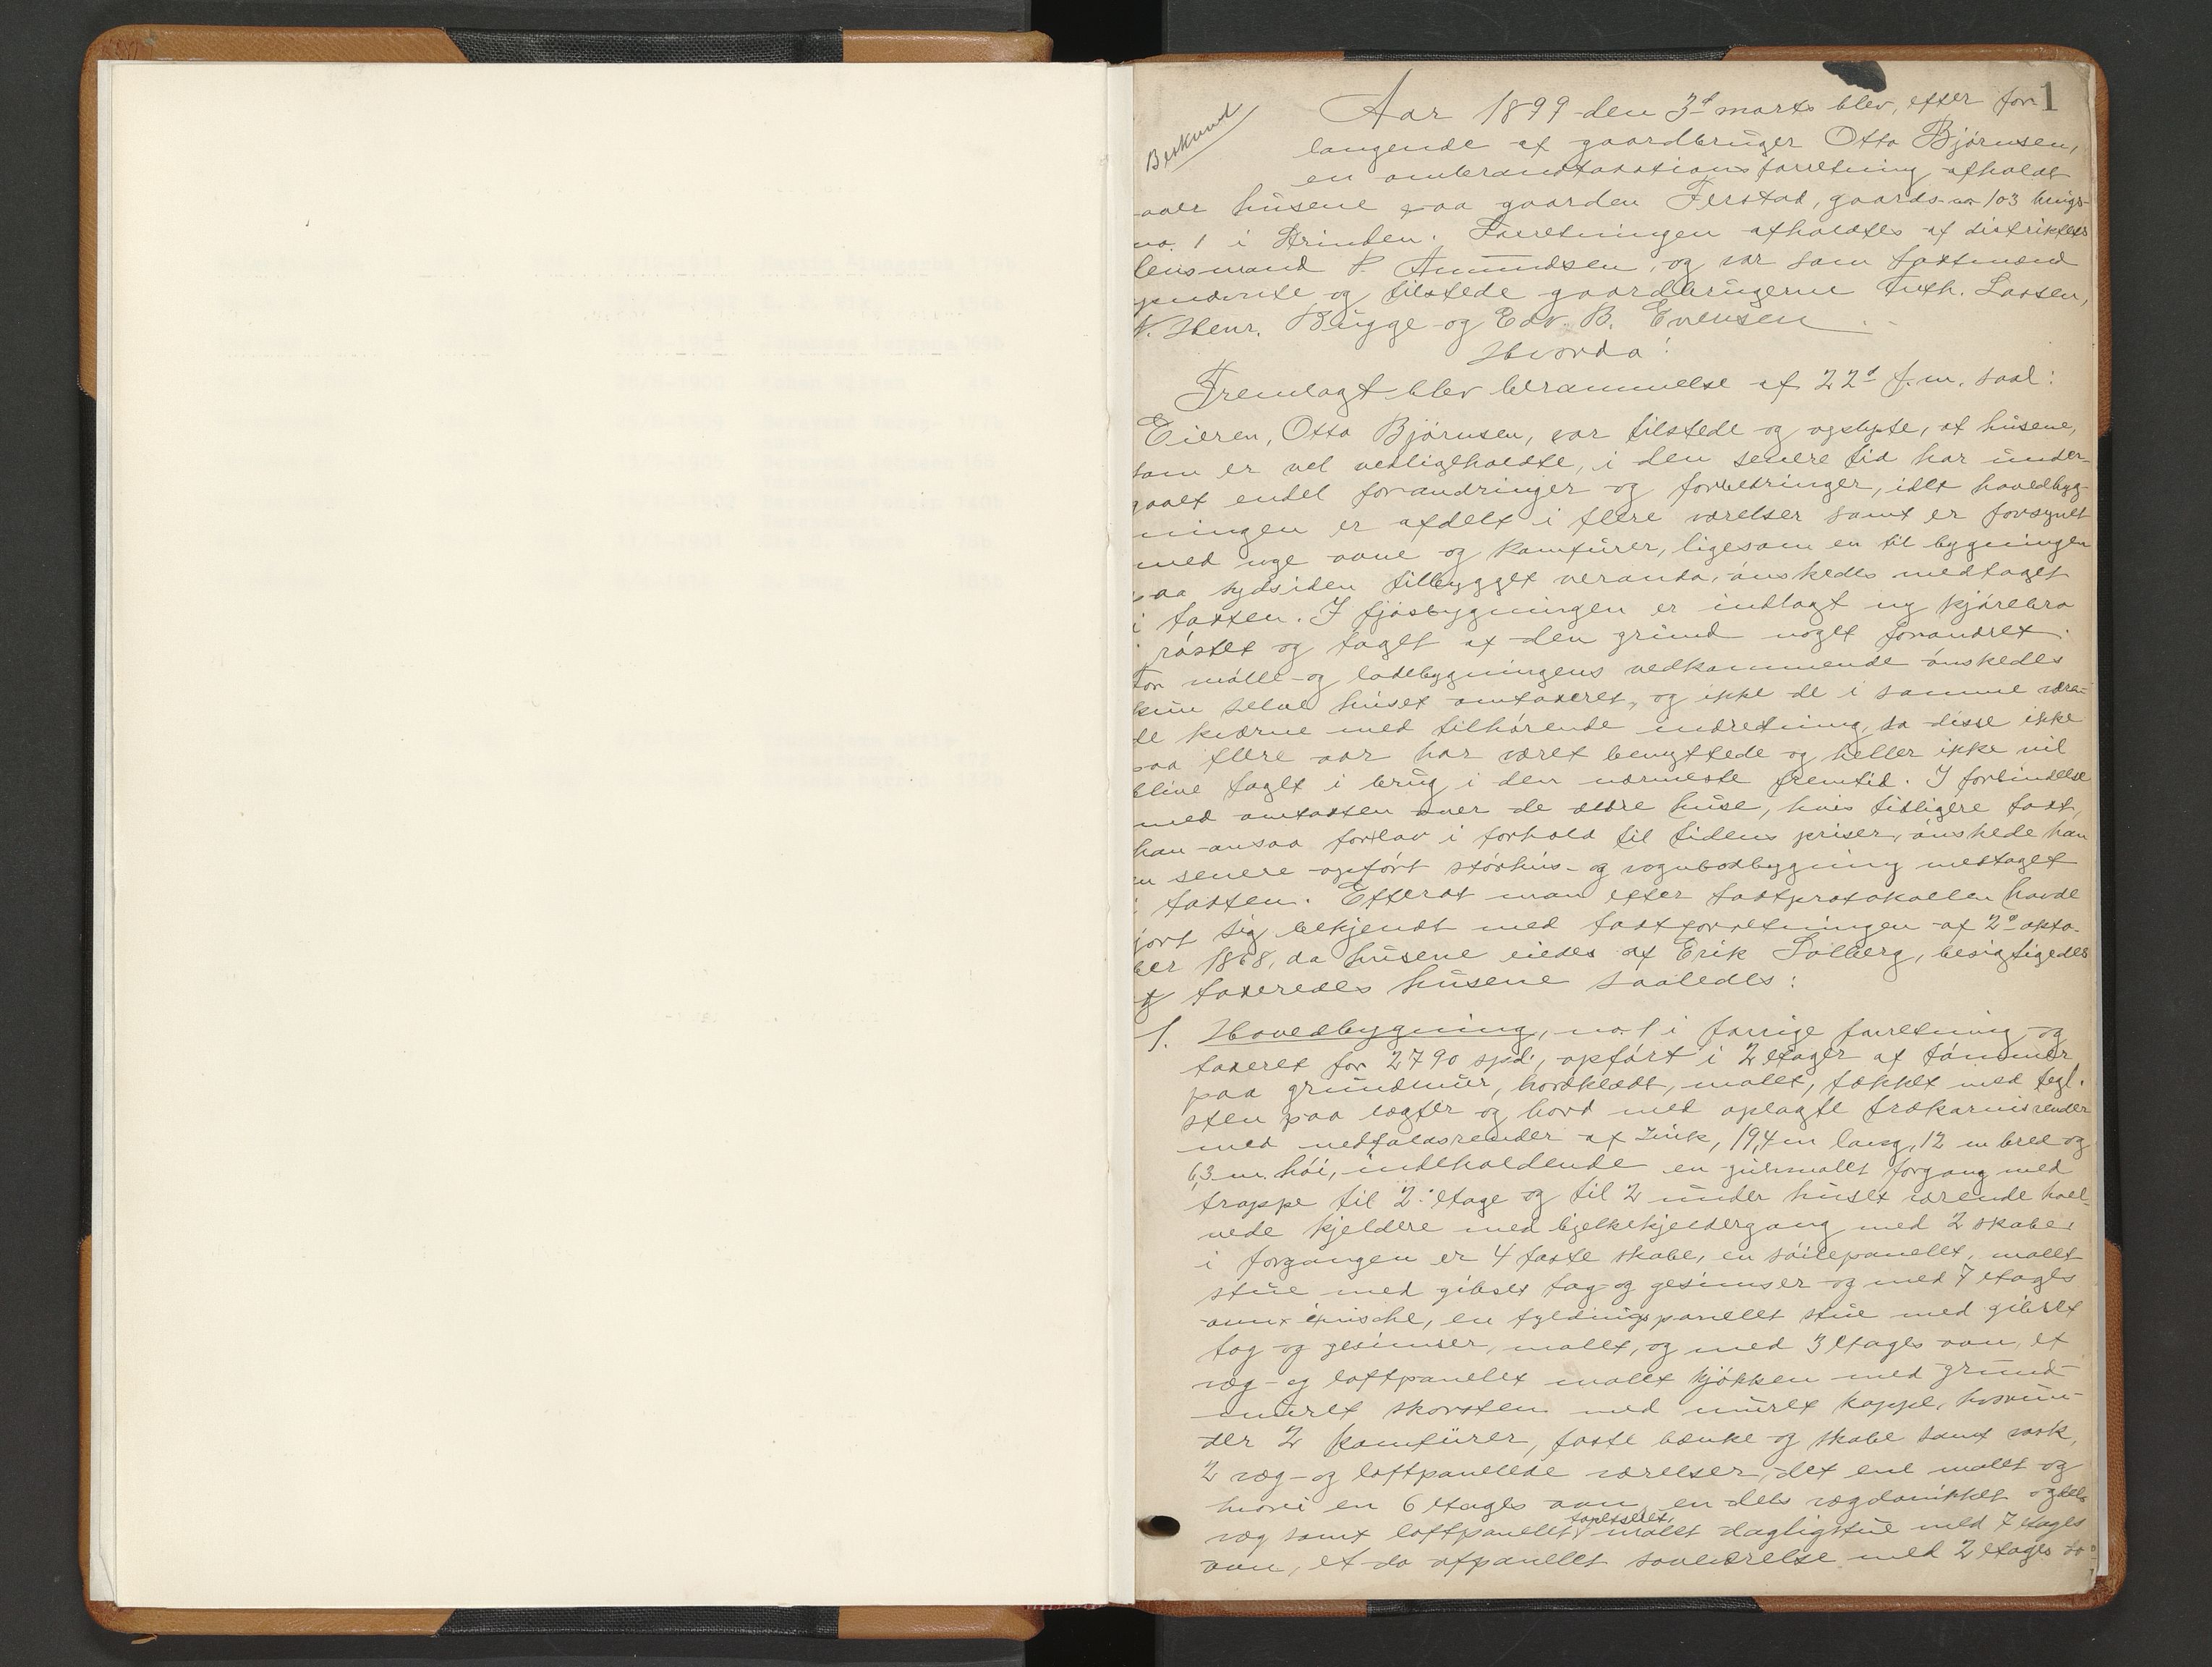 1
Beskund
Aar 1899 den 3d marts blev, efter for-
langende af gaardbruger Otto Bjørnsen,
en ombrandtaxtionsforretning afholdt
over husene paa gaarden Ferstad, gaards-no 103 brugs-
no. 1 i Strinden. Forretningen afholdtes af distriktets
lensmand P. Amundsen, og var som taxtmænd
og tilstede gaardbrugerne Anth. Larsen,
N. Henr. Bugge og Edv. B. Evensen.
Hvorda!
Fremlagt blev berammelse af 22d f.m. saal:
Eieren, Otto Bjørnsen, var tilstede og oplyste, at husene,
som er vel vedligeholdte, i den senere tid har under-
gaaet endel forandringer og forbedringer, idet hovedbyg-
ningen er afdelt i flere værelser samt er forsynet
med nye ovne og komfurer, ligesom en til bygningen
paa sydsiden tilbygget veranda, ønskedes medtaget
i taxten. I fjøsbygningen er indlagt ny kjørebro
røstet og taget af den grund noget forandret.
For mølle- og ladebygningens vedkommende ønskedes
kun selve huset omtaxeret, og ikke de i samme væren-
de kværne med tilhørende indretning, da disse ikke
paa flere aar har været benyttede og heller ikke vil
blive taget i brug i den nærmeste fremtid. I forbindelse
med omtaxten over de ældre huse, hvis tidligere taxt,
han ansaa for lav i forhold til tidens priser, ønskede han
en senere opført størhus- og vognbodbygning medtaget
i taxten. Efterat man efter taxtprotokollen havde
gjort sig bekjendt med taxtforretningen af 2d okto-
ber 1868, da husene eiedes af Erik Solberg, besigtigedes
og taxeredes husene saaledes:
1. Hovedbygning, no. 1 i forrige forretning og
taxeret for 2790 spd., opført i 2 etager af tømmer
paa grundmur, bordklædt, malet, tækket med tegl-
sten paa lægter og bord med oplagte trækarnisrender
med nedfaldsrender af zink, 19,4 m lang, 12 m bred og
6,3 m. høi, indeholdende en gulvmalet forgang med
trappe til 2. etage og til 2 under huset værende hvel-
vede kjeldere med bjelkekjeldergang med 2 skabe,
i forgangen er 4 faste skabe, en søilepanelet, malet
stue med gibset tag og gesimser og med 7 etages
ovn i nische, en fyldingspanelet stue med gibset
tag og gesimser, malet, og med 3 etages ovn, et
væg- og loftpanelet malet kjøkken med grund-
muret skorsten med muret kappe, hvorun-
der 2 komfürer, faste bænke og skabe samt vask,
2 væg- og loftpanelede værelser, det ene malet og
hvori en 6 etages ovn, en dels og dels
væg samt loftpanellet, tapetseret, malet dagligstue med 7 etages
ovn, et do afpanellet soveværelse med 2 etages do